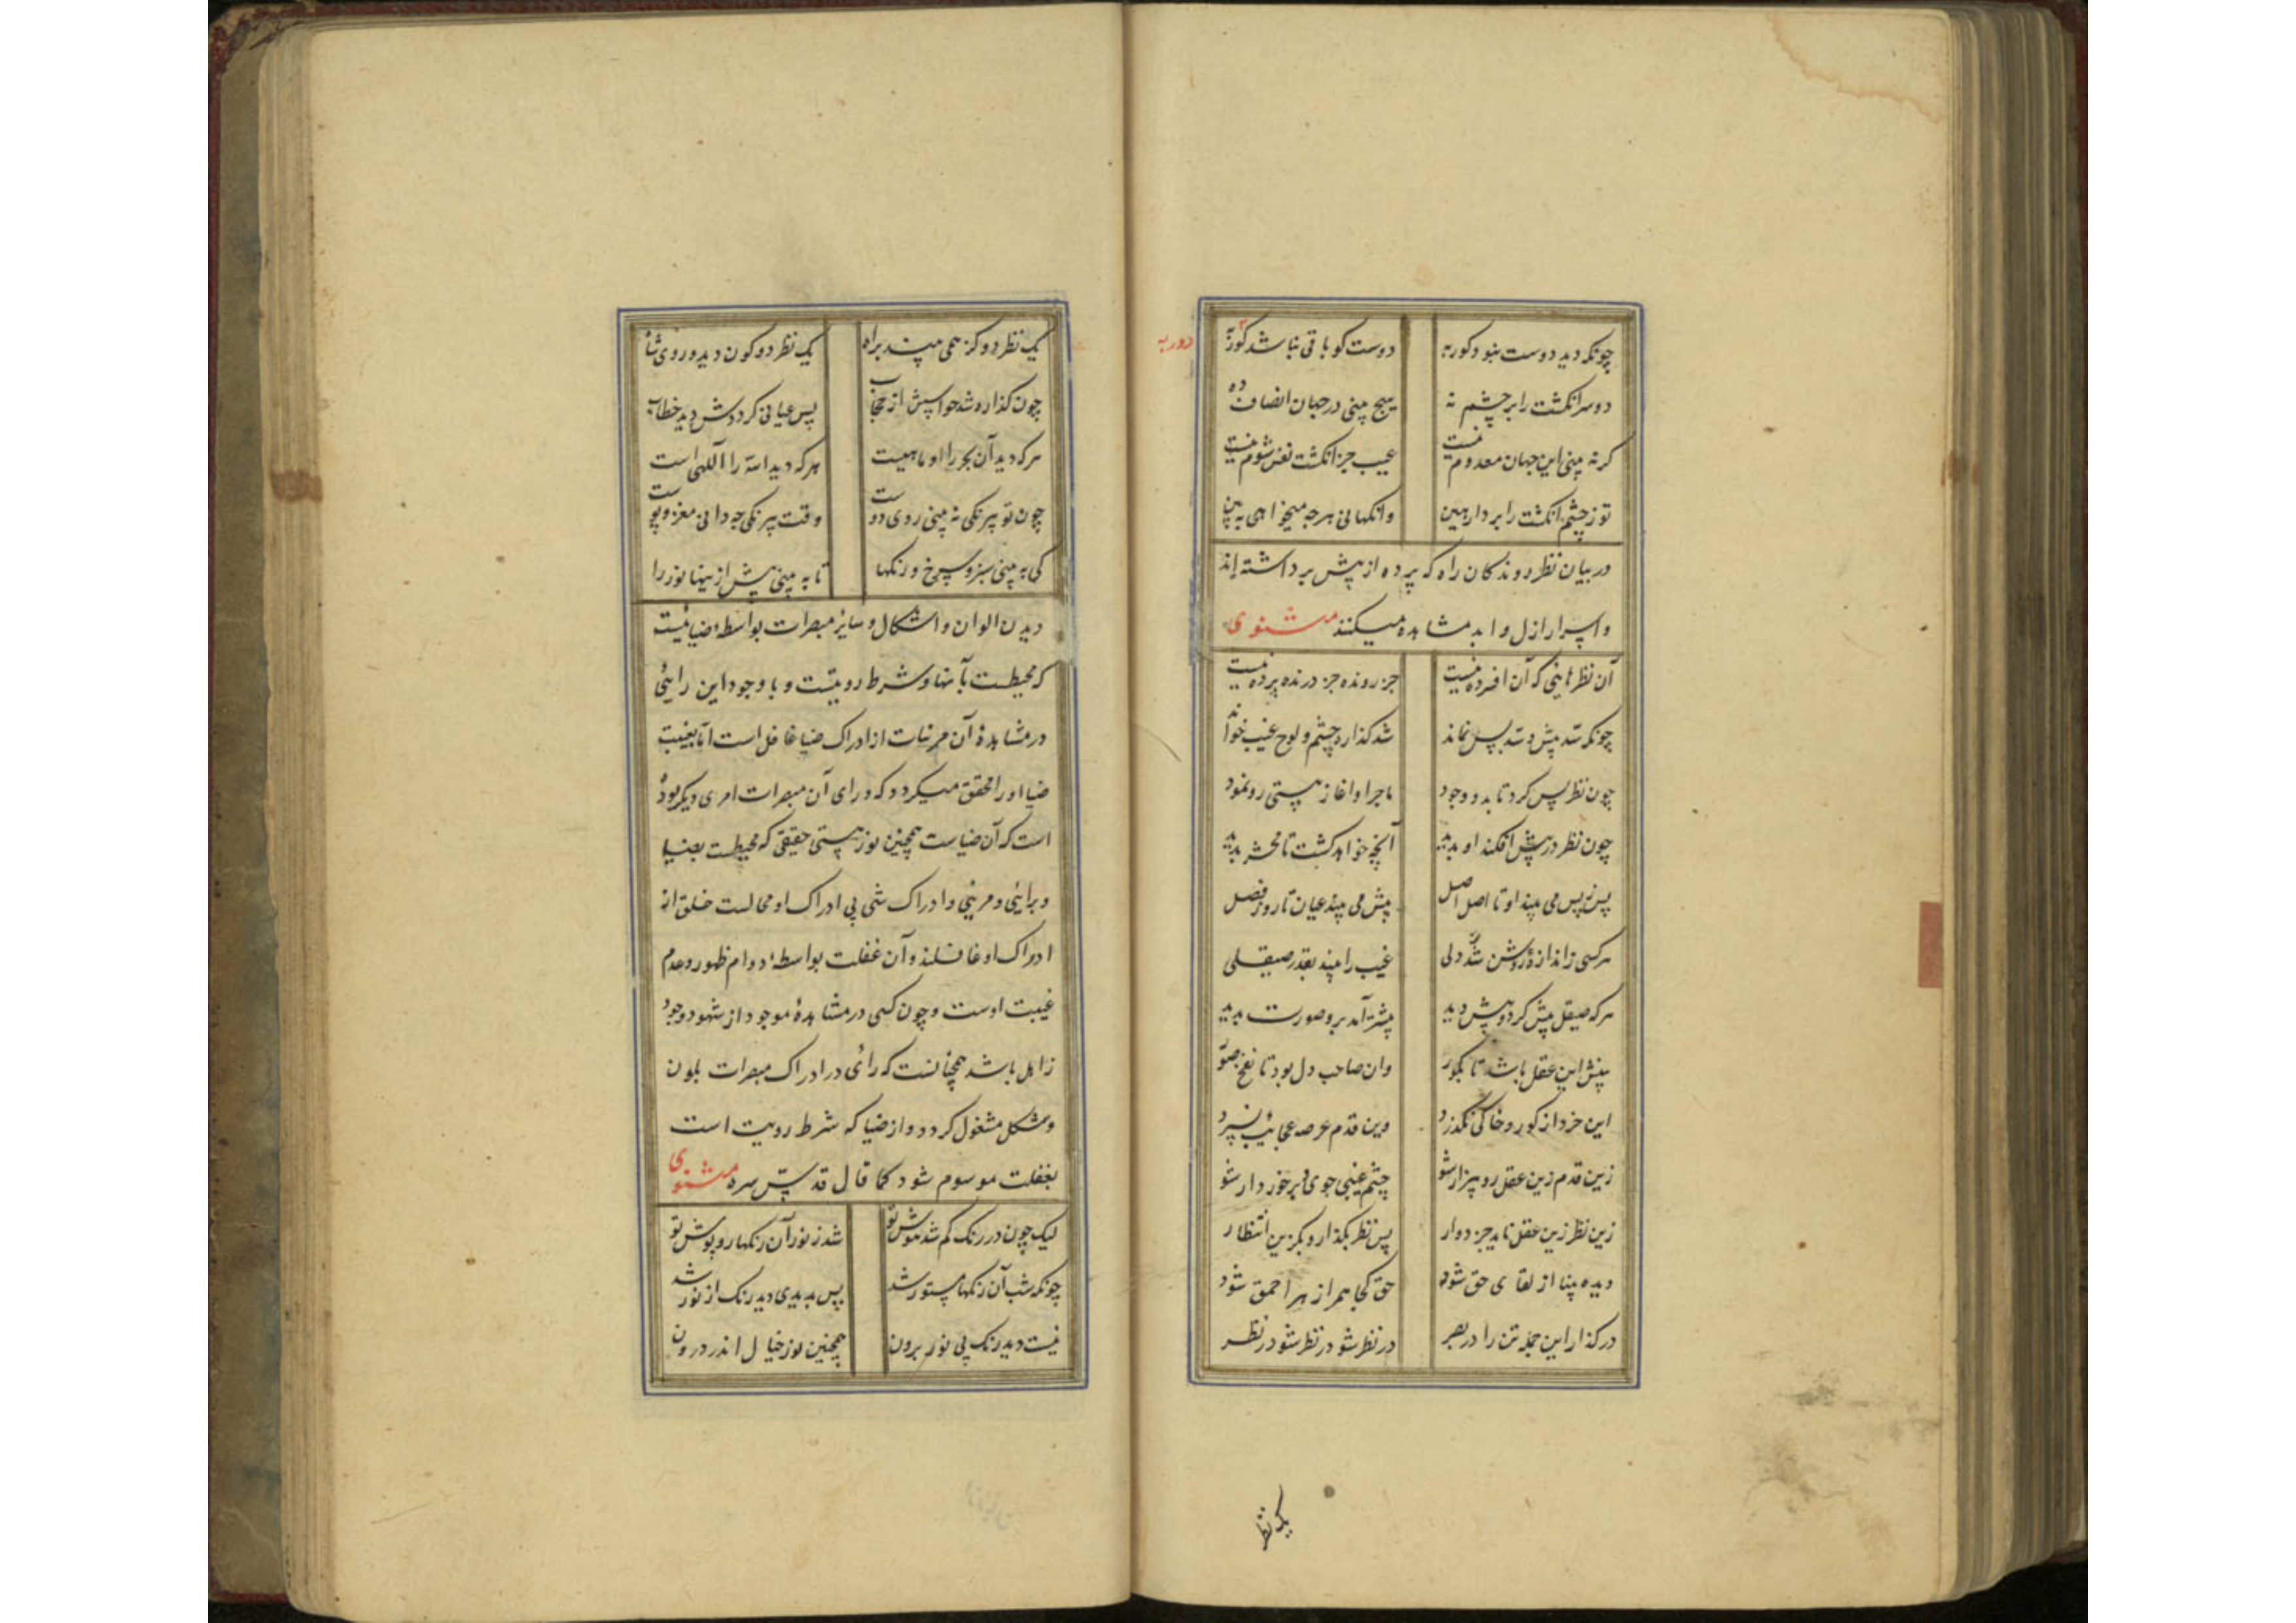 چونکه دید دوست نبود کور به دوست کو باقی نباشد کور به
دور به
دو سر انکشت را بر چشم نه هیچ بینی در جهان انصاف ده
کر نه بینی این جهان معدوم نیست عیب جز انکشت نفس شوم نیست
تو ز چشم انکشت را بردار هین وانکهانی هر چه میخواهی به بین
در بیان نظر روندکان راه که پرده از پیش برداشته اند
و اسرار ازل و ابد مشاهده میکنند مثنوی
آن نظرهایی که آن افسرده نیست جز رونده جز درنده پرده نیست
چونکه سد پیش و سد پس نماند شد کذاره چشم و لوح غیب خواند
چون نظر پس کرد تا بدو وجود ماجرا و اغاز هستی رو نمود
چون نظر در پیش افکند او بدید آنچه خواهد کشت تا محشر پدید
پس ز پس می بیند او تا اصل اصل پیش می بیند عیان تا روز فصل
هر کسی ز اندازهٔ روشن دلی غیب را بیند بقدر صیقلی
هر که صیقل بیش کرد و بیش دید بیشتر آمد برو صورت پدید
بینش این عقل باشد تا بکور وان صاحب دل بود تا نفخ صور
این خرد از کور و خاکی نکذرد وین قدم عرصه عجایب نسپرد
زین قدم زین عقل رو بیزار شو چشم غیبی جوی و برخوردار شو
زین نظر زین عقل ناید جز دوار پس نظر بکذار و بکزین انتظار
دیده بینا از لقای حق شود حق کجا همراز هر احمق شود
در کذار این جمله تن را در بصر در نظر شو در نظر شو در نظر
یک نظر
یک نظر دو کز همی بیند براه یک نظر دو کون دید و روی شاه
چون کذاره شد حواسش از حجاب پس عیانی کرددش دید خطاب
هر که دید آن بحر را او ماهیست هر که دید الله را اللهی است
چون تو بیرنکی نه بینی روی دوست وقت بیرنکی چه دانی مغز و پوست
کی به بینی سبز و سرخ و رنکها تا به بینی پیش از اینها نور را
دیدن الوان و اشکال و سایر مبصرات بواسطهٔ ضیائیست
که محیطست بآنها و شرط رویتست و با وجود این رائی
در مشاهدهٔ آن مرئیات از ادراک ضیا غافل است اما بغیبت
ضیا او را محقق میکردد که ورای آن مبصرات امری دیکر بوده
است که آن ضیاست همچنین نور هستی حقیقی که محیطست بضیا
و برائی و مرئی و ادراک شی بی ادراک او محالست خلق از
ادراک او غافلند و آن غفلت بواسطهٔ دوام ظهور و عدم
غیبت اوست و چون کسی در مشاهدهٔ موجود از شهود وجود
زاهل باشد همچنانست که رائی در ادراک مبصرات بلون
و شکل مشغول کردد و از ضیا که شرط رویت است
بغفلت موسوم شود کما قال قدس سره مثنوی
لیک چون در رنک کم شد هوش تو شد ز نور آن رنکها روپوش تو
چونکه شب آن رنکها مستور شد پس بدیدی دید رنک از نور شد
نیست دید رنک بی نور برون همچنین نور خیال اندر درون